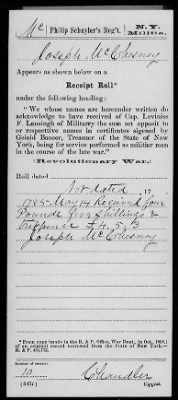 Mc
Philip Schuyler's Reg't.
N. Y.
Militia.
Joseph McChesney
Appears as shown below on a
Receipt Roll*
under the following heading:
"We whose names are hereunder written do
acknowledge to have received of Cap. Levinius
F. Lansingh of Militarry the sum set opposite to
or respective names in certificates signed by
Geinid Bancor, Treasurer of the State of New
York, being for service performed as militar men
in the course of the late war."
(Revolutionary War.)
Roll dated
Not dated, 17 .
1785 May 14 Received four
Pounds five shillings &
£4. 5. 3
Joseph McChesney
*From copy made in the R. & P. Office, War Dept., in Oct.,
of an original record borrowed from the State of New York—
R. & P.
Number of record:
10
Chandler
Copyist.